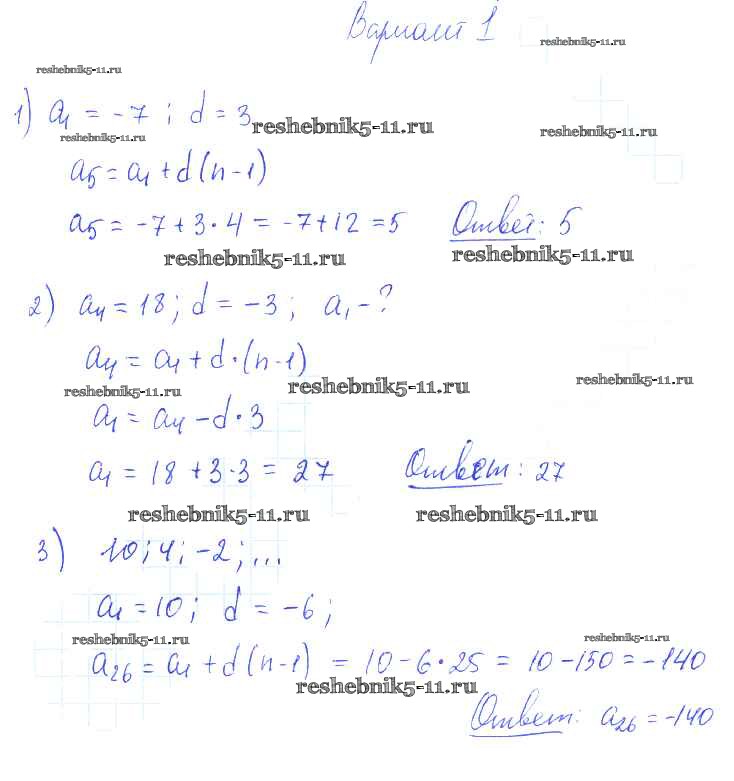 Вариант 1
reshebnik5-11.ru
reshebnik5-11.ru
1) a₁ = -7 ; d = 3
reshebnik5-11.ru
reshebnik5-11.ru
reshebnik5-11.ru
a₅ = a₁ + d(n-1)
a₅ = -7 + 3·4 = -7+12 = 5 Ответ: 5
reshebnik5-11.ru
reshebnik5-11.ru
2) a₄ = 18 ; d = -3 ; a₁ - ?
a₄ = a₁ + d·(n-1)
reshebnik5-11.ru
reshebnik5-11.ru
reshebnik5-11.ru
a₁ = a₄ - d·3
a₁ = 18 + 3·3 = 27 Ответ: 27
reshebnik5-11.ru
reshebnik5-11.ru
3) 10; 4; -2; ...
a₁ = 10; d = -6;
reshebnik5-11.ru
reshebnik5-11.ru
a₂₆ = a₁ + d(n-1) = 10 - 6·25 = 10 - 150 = -140
reshebnik5-11.ru
Ответ: a₂₆ = -140